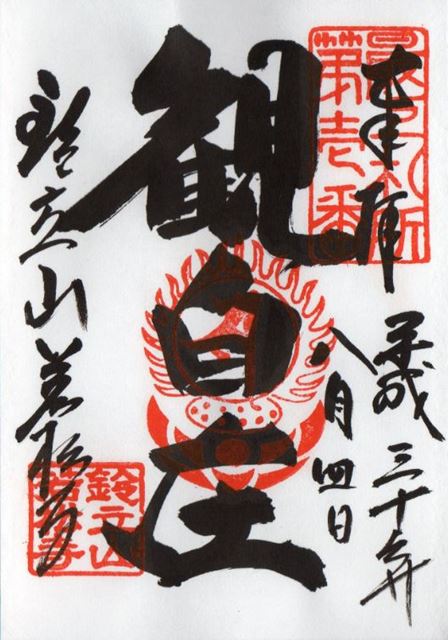 奉拝
平成三十年
八月四日
最上札所
第壱番
観自在
鈴立山 若松寺
鈴立山
若松寺